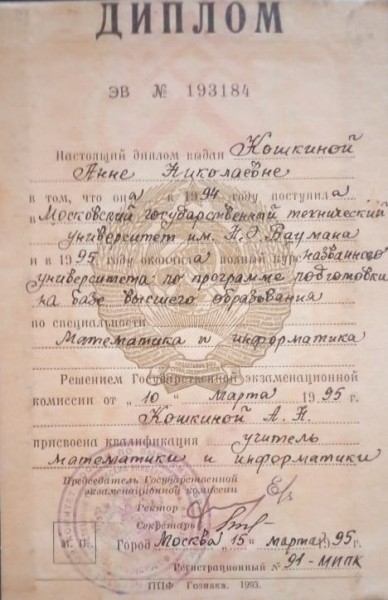 ДИПЛОМ
ЭВ № 193184
Настоящий диплом выдан Кошкиной
Анне Николаевне
в том, что она в 1994 году поступила
в Московский государственный технический
университет им. Н.Э. Баумана
и в 1995 году окончила полный курс названного
университета по программе подготовки
на базе высшего образования
по специальности
Математика и информатика
Решением Государственной экзаменационной
комиссии от „10“ марта 1995 г.
Кошкиной А.Н.
присвоена квалификация учитель
математики и информатики
Председатель Государственной
экзаменационной комиссии
Ректор
Секретарь
М. П. Город Москва „15“ марта 1995 г.
Регистрационный № 91-МИПК
ППФ Гознака. 1993.